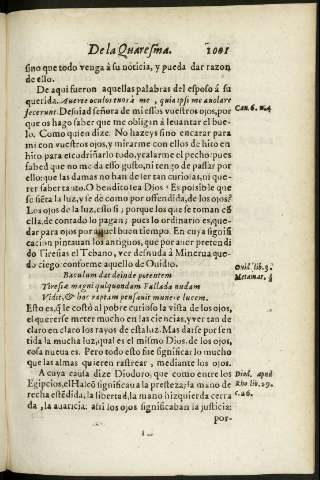 De la Quaresma. 1001
sino que todo venga à su noticia, y pueda dar razon
de ello.
De aqui fueron aquellas palabras del esposo á su
querida. Auerte oculos tuos à me, quia ipsi me auolare
fecerunt. Desuiad señora de mi essos vuestros ojos, por
que os hago saber que me obligan à leuantar el bue-
lo. Como quien dize. No hazeys sino encarar para
mi con vuestros ojos, y mirarme con ellos de hito en
hito para escudriñarlo todo, y calarme el pecho: pues
sabed que no me da esso gusto, ni tengo de passar por
ello: que las damas no han de ser tan curiosas, ni que-
rer saber tanto. O bendito sea Dios! Es posible que
se siẽta la luz, y se dè como por offendida, de los ojos?
Los ojos de la luz, esso si; porque los que se toman cõ
ella, de contado lo pagan; pues lo ordinario es, que-
dar para ojos por aquel buen tiempo. En cuya signifi
cacion pintauan los antiguos, que por auer pretendi
do Tiresias el Tebano, ver desnuda à Minerua que-
do ciego: conforme aquello de Ouidio.
Baculum dat deinde potentem
Tiresiæ magni quIquondam Pallada nudam
Vidit, & hoc raptam pensauit munere lucem.
Esto es, q̃ le costó al pobre curioso la vista de los ojos,
el quererse meter mucho en las ciencias, y ver tan de
claro en claro los rayos de esta luz. Mas darse por sen
tida la mucha luz, qual es el mismo Dios, de los ojos,
cosa nueua es. Pero todo esto fue significar lo mucho
que las almas quieren rastrear, mediante los ojos.
A cuya causa dize Diodoro, que como entre los
Egipcios, el Halcõ significaua la presteza; la mano de
recha estẽdida, la libertad, la mano hizquierda cerra
da, la auaricia: assi los ojos significaban la justicia:
por-
Can. 6. n.4
Ouid. lib.
Metamor.
Diod. apud
Rho lib. 29.
c. 26.